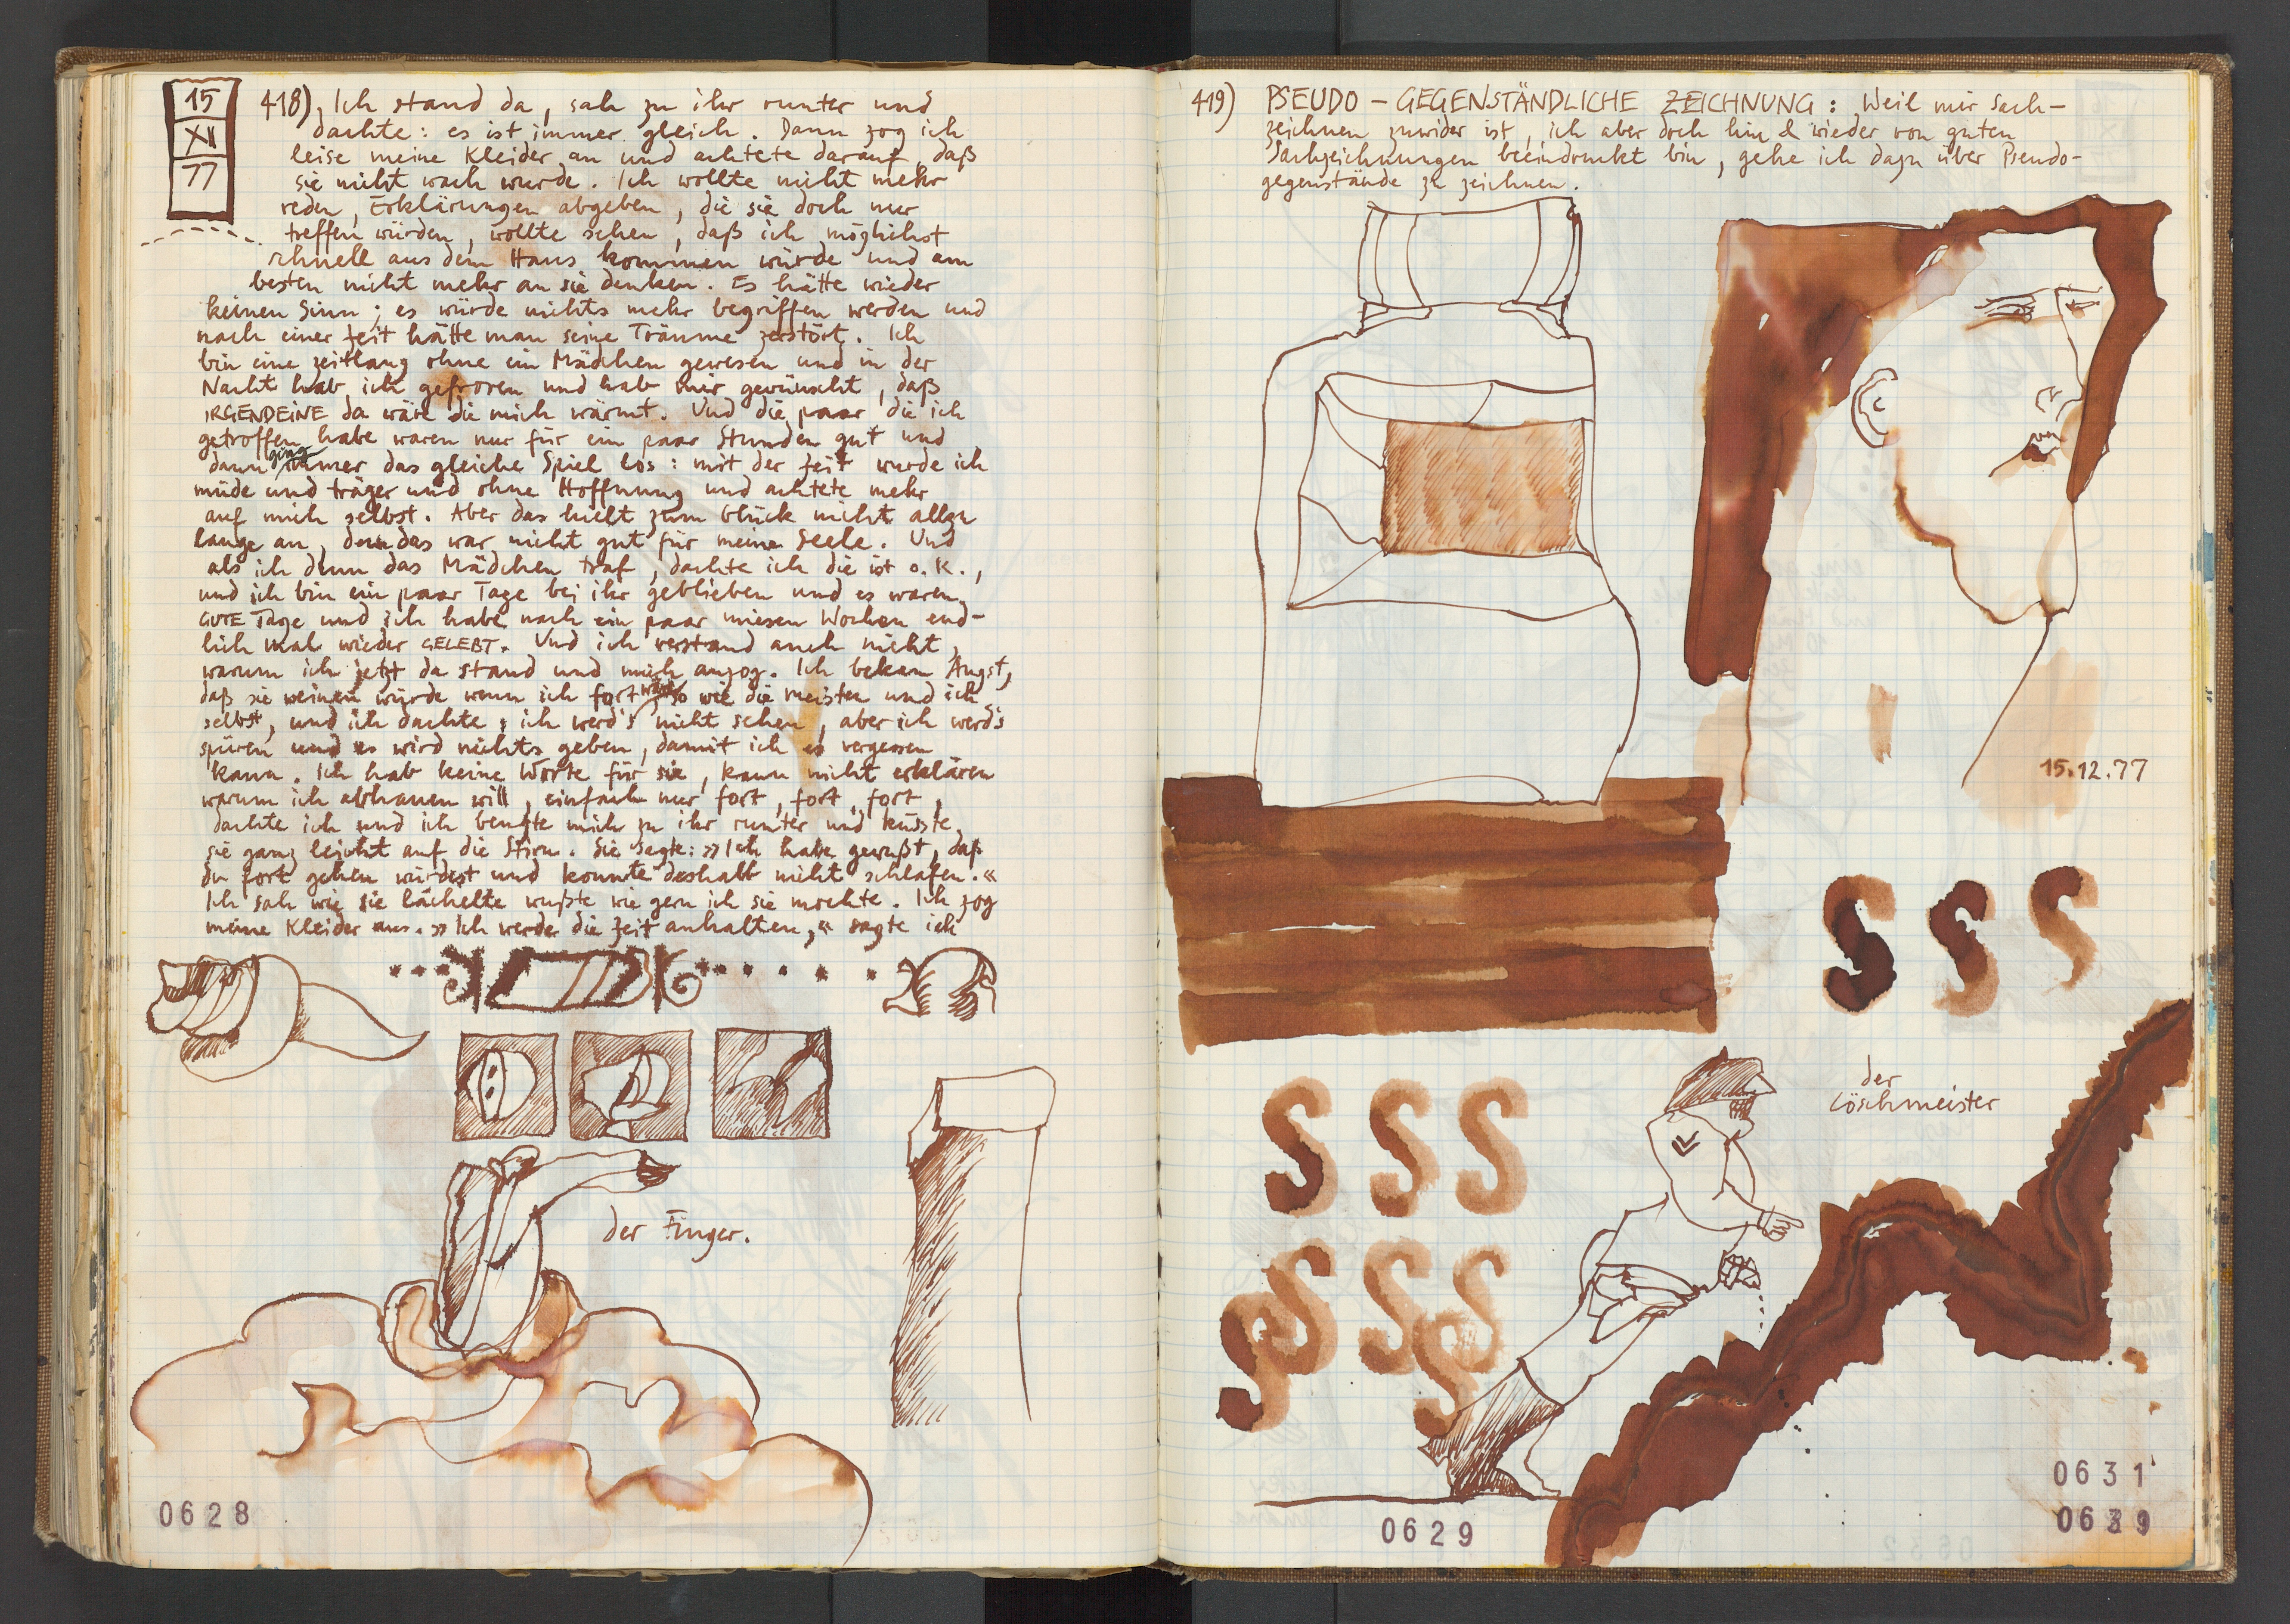 15
XII
77
418) Ich stand da, sah zu ihr runter und
dachte: es ist immer gleich. Dann zog ich
leise meine Kleider an und achtete darauf, daß
sie nicht wach wurde. Ich wollte nicht mehr
reden, Erklärungen abgeben, die sie doch nur
treffen würden, wollte sehen, daß ich möglichst
schnell aus dem Haus kommen würde und am
besten nicht mehr an sie denken. Es hätte wieder
keinen Sinn; es würde nichts mehr begriffen werden und
nach einer Zeit hätte man seine Träume zerstört. Ich
bin eine zeitlang ohne ein Mädchen gewesen und in der
Nacht hab ich gefroren und hab mir gewünscht, daß
IRGENDEINE da wäre die mich wärmt. Und die paar die ich
getroffen habe waren nur für ein paar Stunden gut und
dann ging immer das gleiche Spiel los: mit der Zeit wurde ich
müde und träger und ohne Hoffnung und achtete mehr
auf mich selbst. Aber das hielt zum Glück nicht allzu
lange an, denn das war nicht gut für meine Seele. Und
als ich dann das Mädchen traf, dachte ich die ist o.K.,
und ich bin ein paar Tage bei ihr geblieben und es waren
GUTE Tage und ich habe nach ein paar miesen Wochen end-
lich mal wieder GELEBT. Und ich verstand auch nicht,
warum ich jetzt da stand und mich anzog. Ich bekam Angst,
daß sie weinen würde wenn ich fort wäre so wie die meisten und ich
selbst, und ich dachte; ich werd's nicht sehen, aber ich werd's
spüren und es wird nichts geben, damit ich es vergessen
kann. Ich hab keine Worte für sie, kann nicht erklären
warum ich abhauen will, einfach nur fort, fort, fort,
dachte ich und ich beugte mich zu ihr runter und küsste
sie ganz leicht auf die Stirn. Sie sagte: »Ich habe gewußt, daß
du fort gehen würdest und konnte deshalb nicht schlafen.«
Ich sah wie sie lächelte wußte wie gern ich sie mochte. Ich zog
meine Kleider aus. »Ich werde die Zeit anhalten,« sagte ich
der Finger.
0628
419) PSEUDO-GEGENSTÄNDLICHE ZEICHNUNG: Weil mir Sach-
zeichnen zuwider ist, ich aber doch hin & wieder von guten
Sachzeichnungen beeindruckt bin, gehe ich dazu über Pseudo-
gegenstände zu zeichnen.
15.12.77
S S S
der
Löschmeister
S S S
S S S
S S
0629
0631